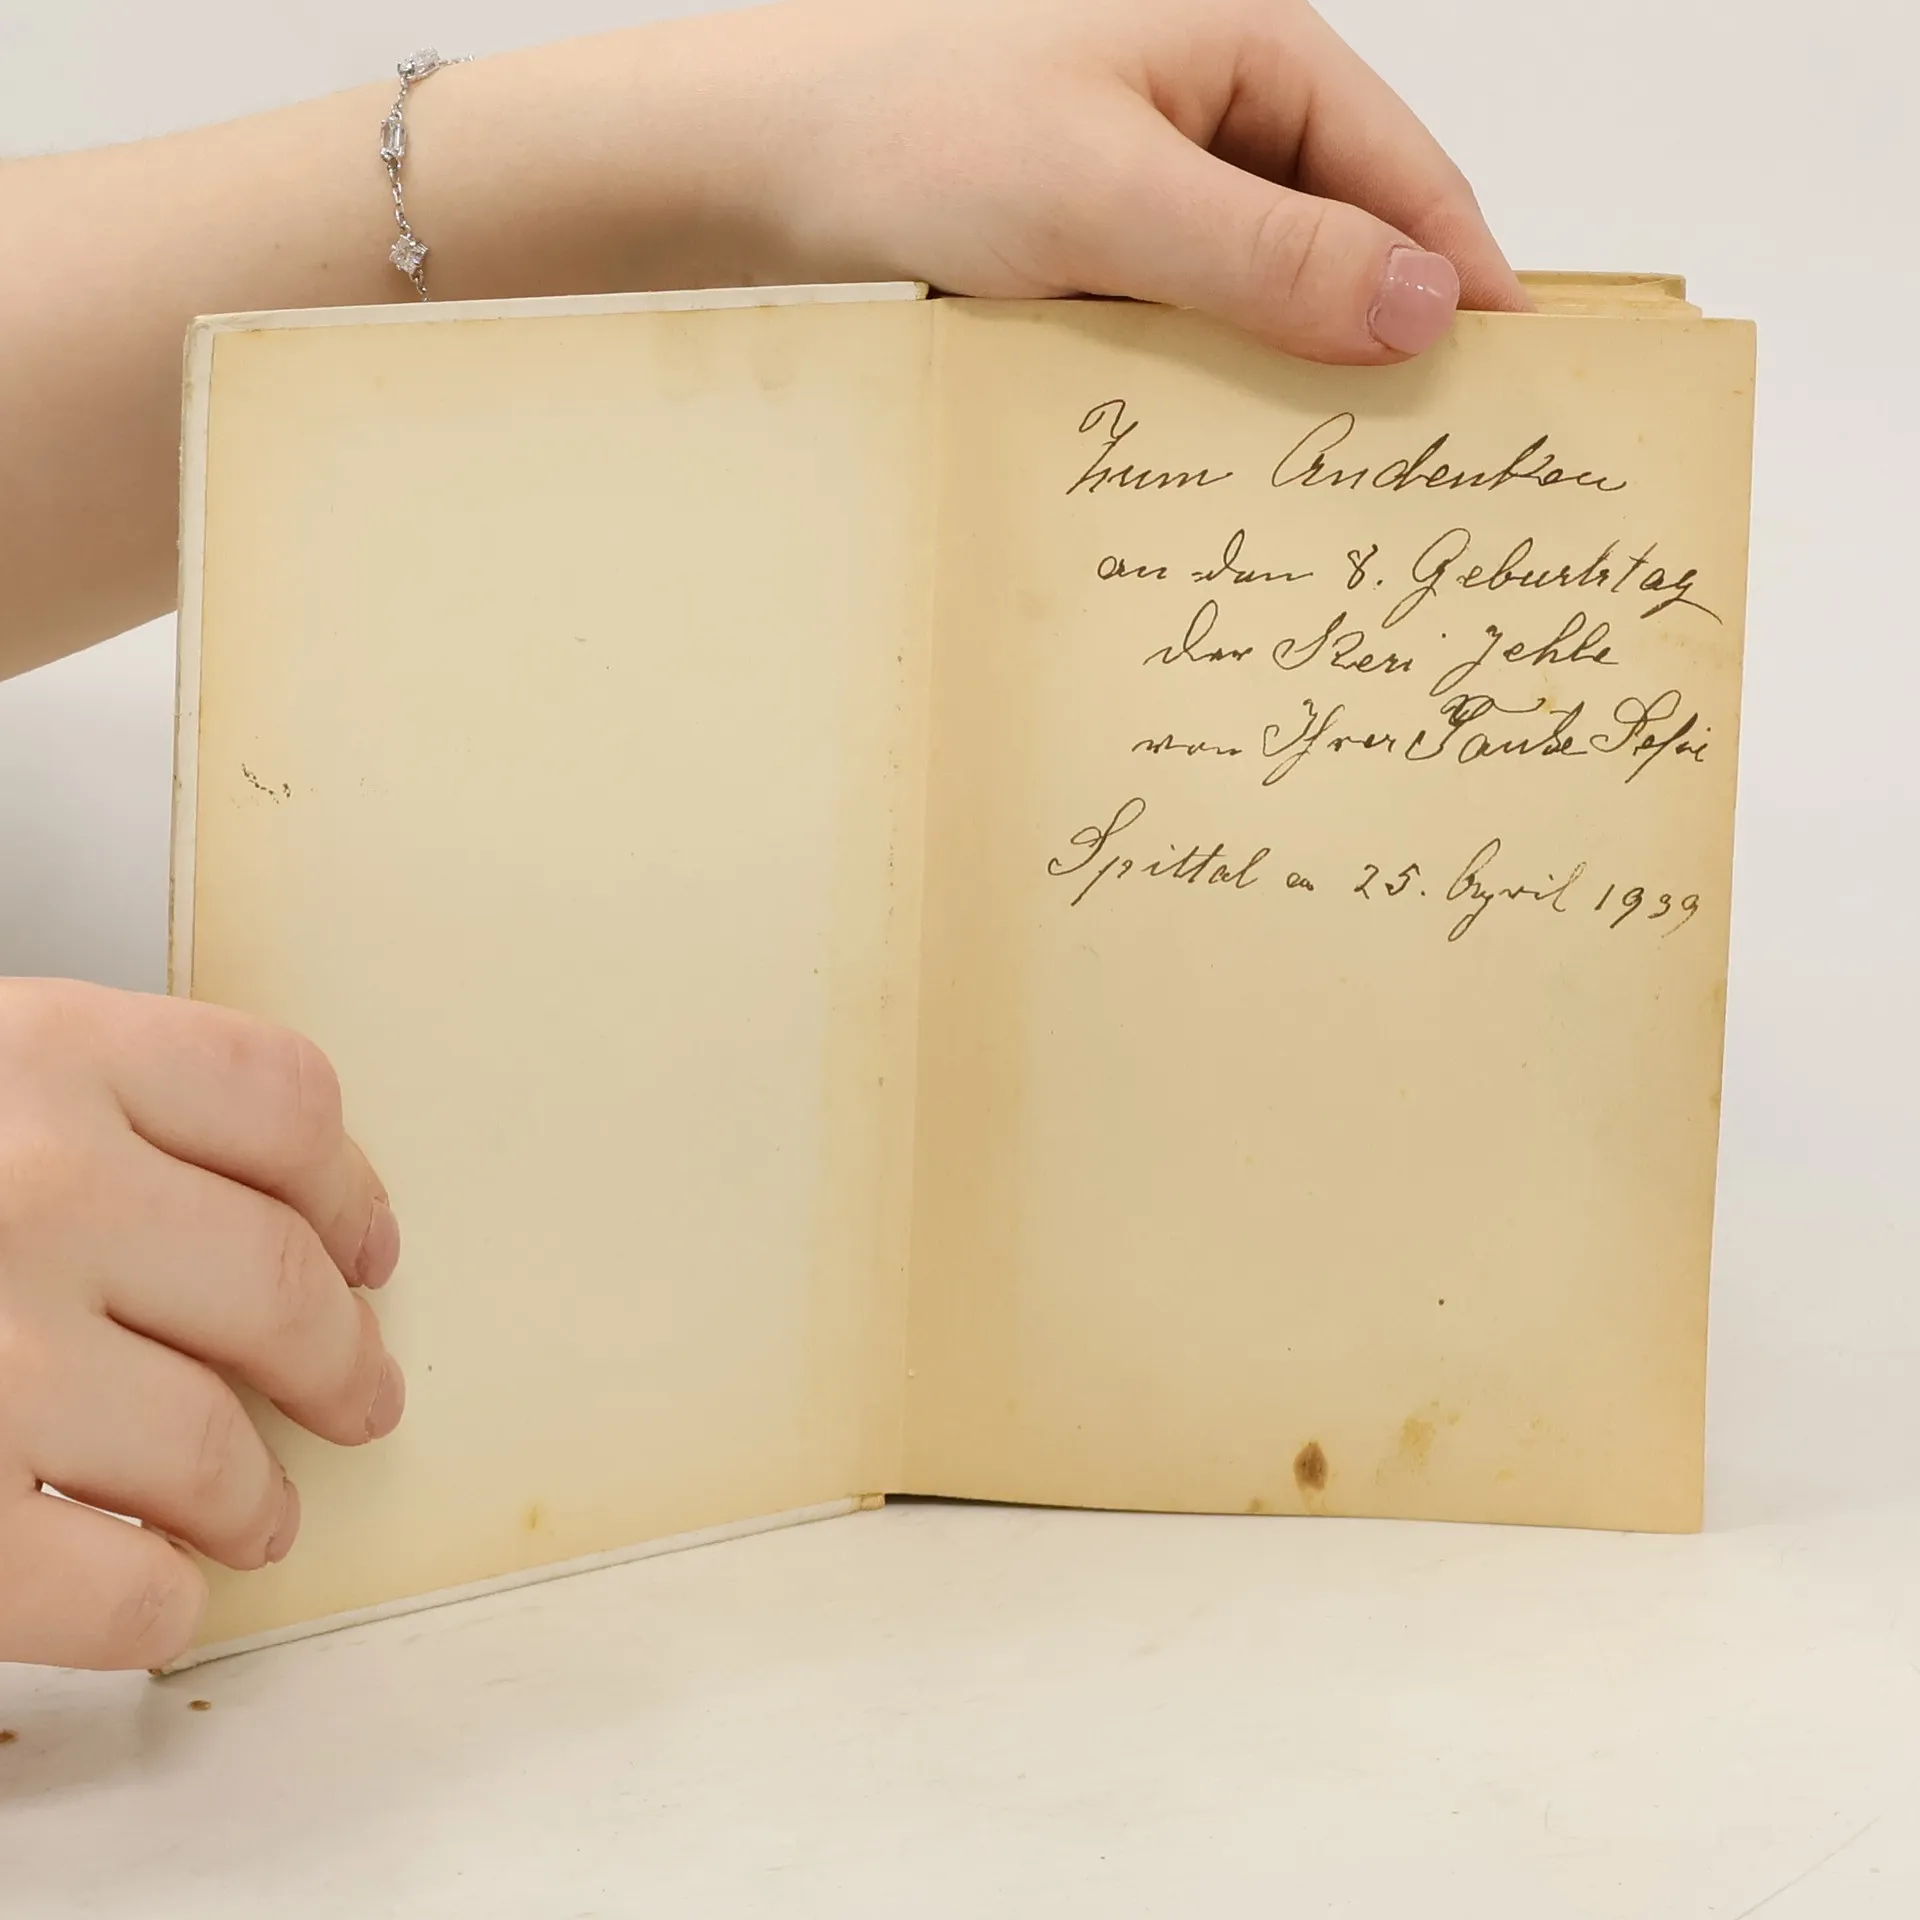 Zum Andenken
an den 8. Geburtstag
der Reri Jehle
von Ihrer Tante Pepi
Spittal a 25. April 1939